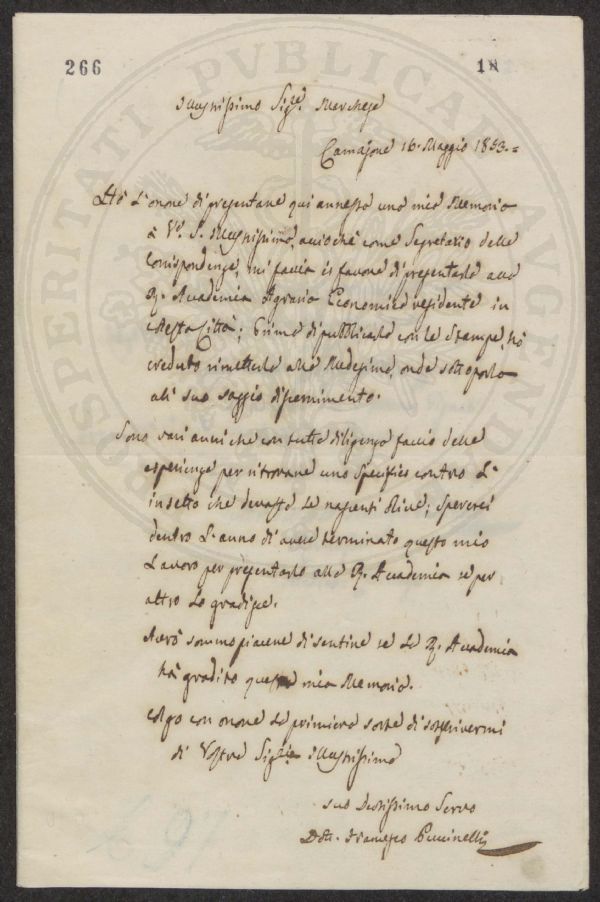 266
18
PROSPERITATI PVBLICAE AVGENDAE
Illustrissimo Sig.re Marchese
Camajore 16. Maggio 1853.=
Hò l'onore di presentare qui annessa una mia Memoria
à V.a S. Illustrissima, acciochè come Segretario delle
Corrispondenze, mi faccia il favore di presentarla alla
R. Accademia Agraria Economica residente in
cotesta Città; Prima di pubblicarla con le Stampe, hò
creduto rimetterla alla Medesima, onde sottoporla
al suo saggio discernimento.
Sono vari anni che con tutta diligenza faccio delle
esperienze per ritrovare uno specifico contro l'
insetto che devasta le nascenti Olive; spererei
dentro l'anno di avere terminato questo mio
Lavoro per presentarlo alla R. Accademia se per
altro lo gradisce.
Averò sommo piacere di sentire se la R. Accademia
hà gradito questa mia Memoria.
Colgo con onore la primiera sorte di sottoscrivermi
di Vostra Sig.ria Illustrissima
suo Devotissimo Servo
Dott. Francesco Puccinelli